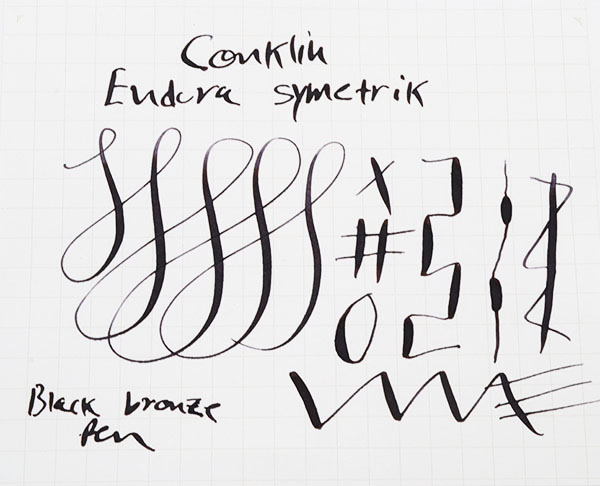 Conklin
Endura symetrik
Black bronze
Pen